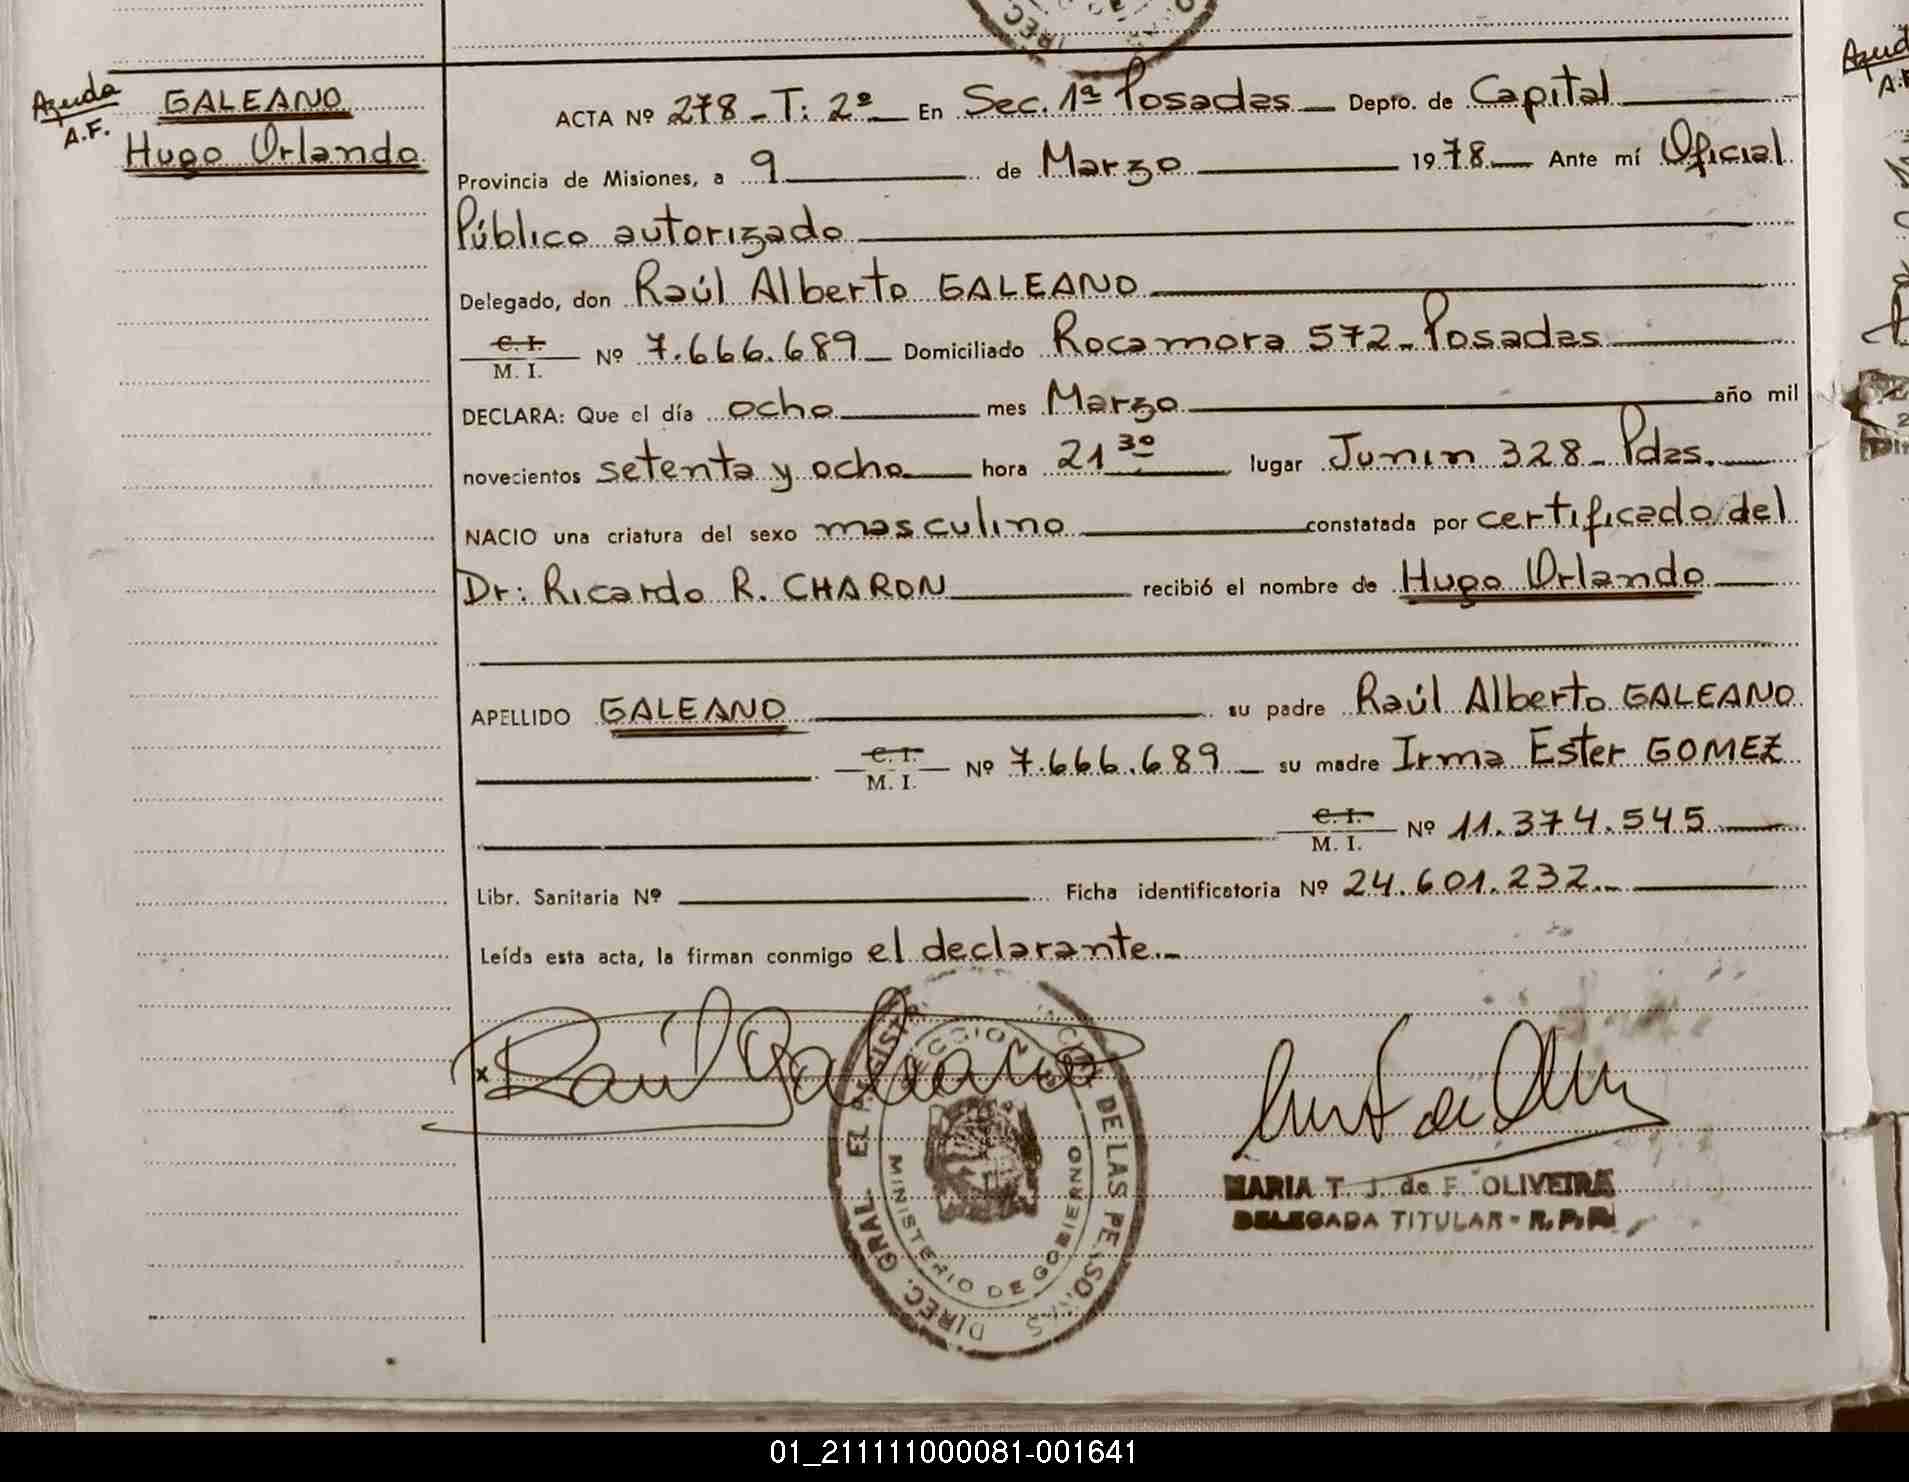 Ayuda
A.F.
GALEANO
Hugo Orlando
ACTA Nº 278 - T: 2º En Sec. 1ª Posadas Depto. de Capital
Provincia de Misiones, a 9 de Marzo 1978 Ante mí Oficial
Público autorizado
Delegado, don Raúl Alberto GALEANO
C. I.
M. I. Nº 7.666.689 Domiciliado Rocamora 572 - Posadas
DECLARA: Que el día ocho mes Marzo año mil
novecientos setenta y ocho hora 21 30 lugar Junin 328 - Pdas.
NACIO una criatura del sexo masculino constatada por certificado del
Dr: Ricardo R. CHARON recibió el nombre de Hugo Orlando
APELLIDO GALEANO su padre Raúl Alberto GALEANO
C. I.
M. I. Nº 7.666.689 su madre Irma Ester GOMEZ
C. I.
M. I. Nº 11.374.545
Libr. Sanitaria Nº Ficha identificatoria Nº 24.601.232.-
Leída esta acta, la firman conmigo el declarante.-
x Raúl Galeano
DIREC. GRAL. DE LAS PERSONAS
MINISTERIO DE GOBIERNO
MARIA T. J. de F. OLIVEIRA
DELEGADA TITULAR - R.P.P.
01_211111000081-001641